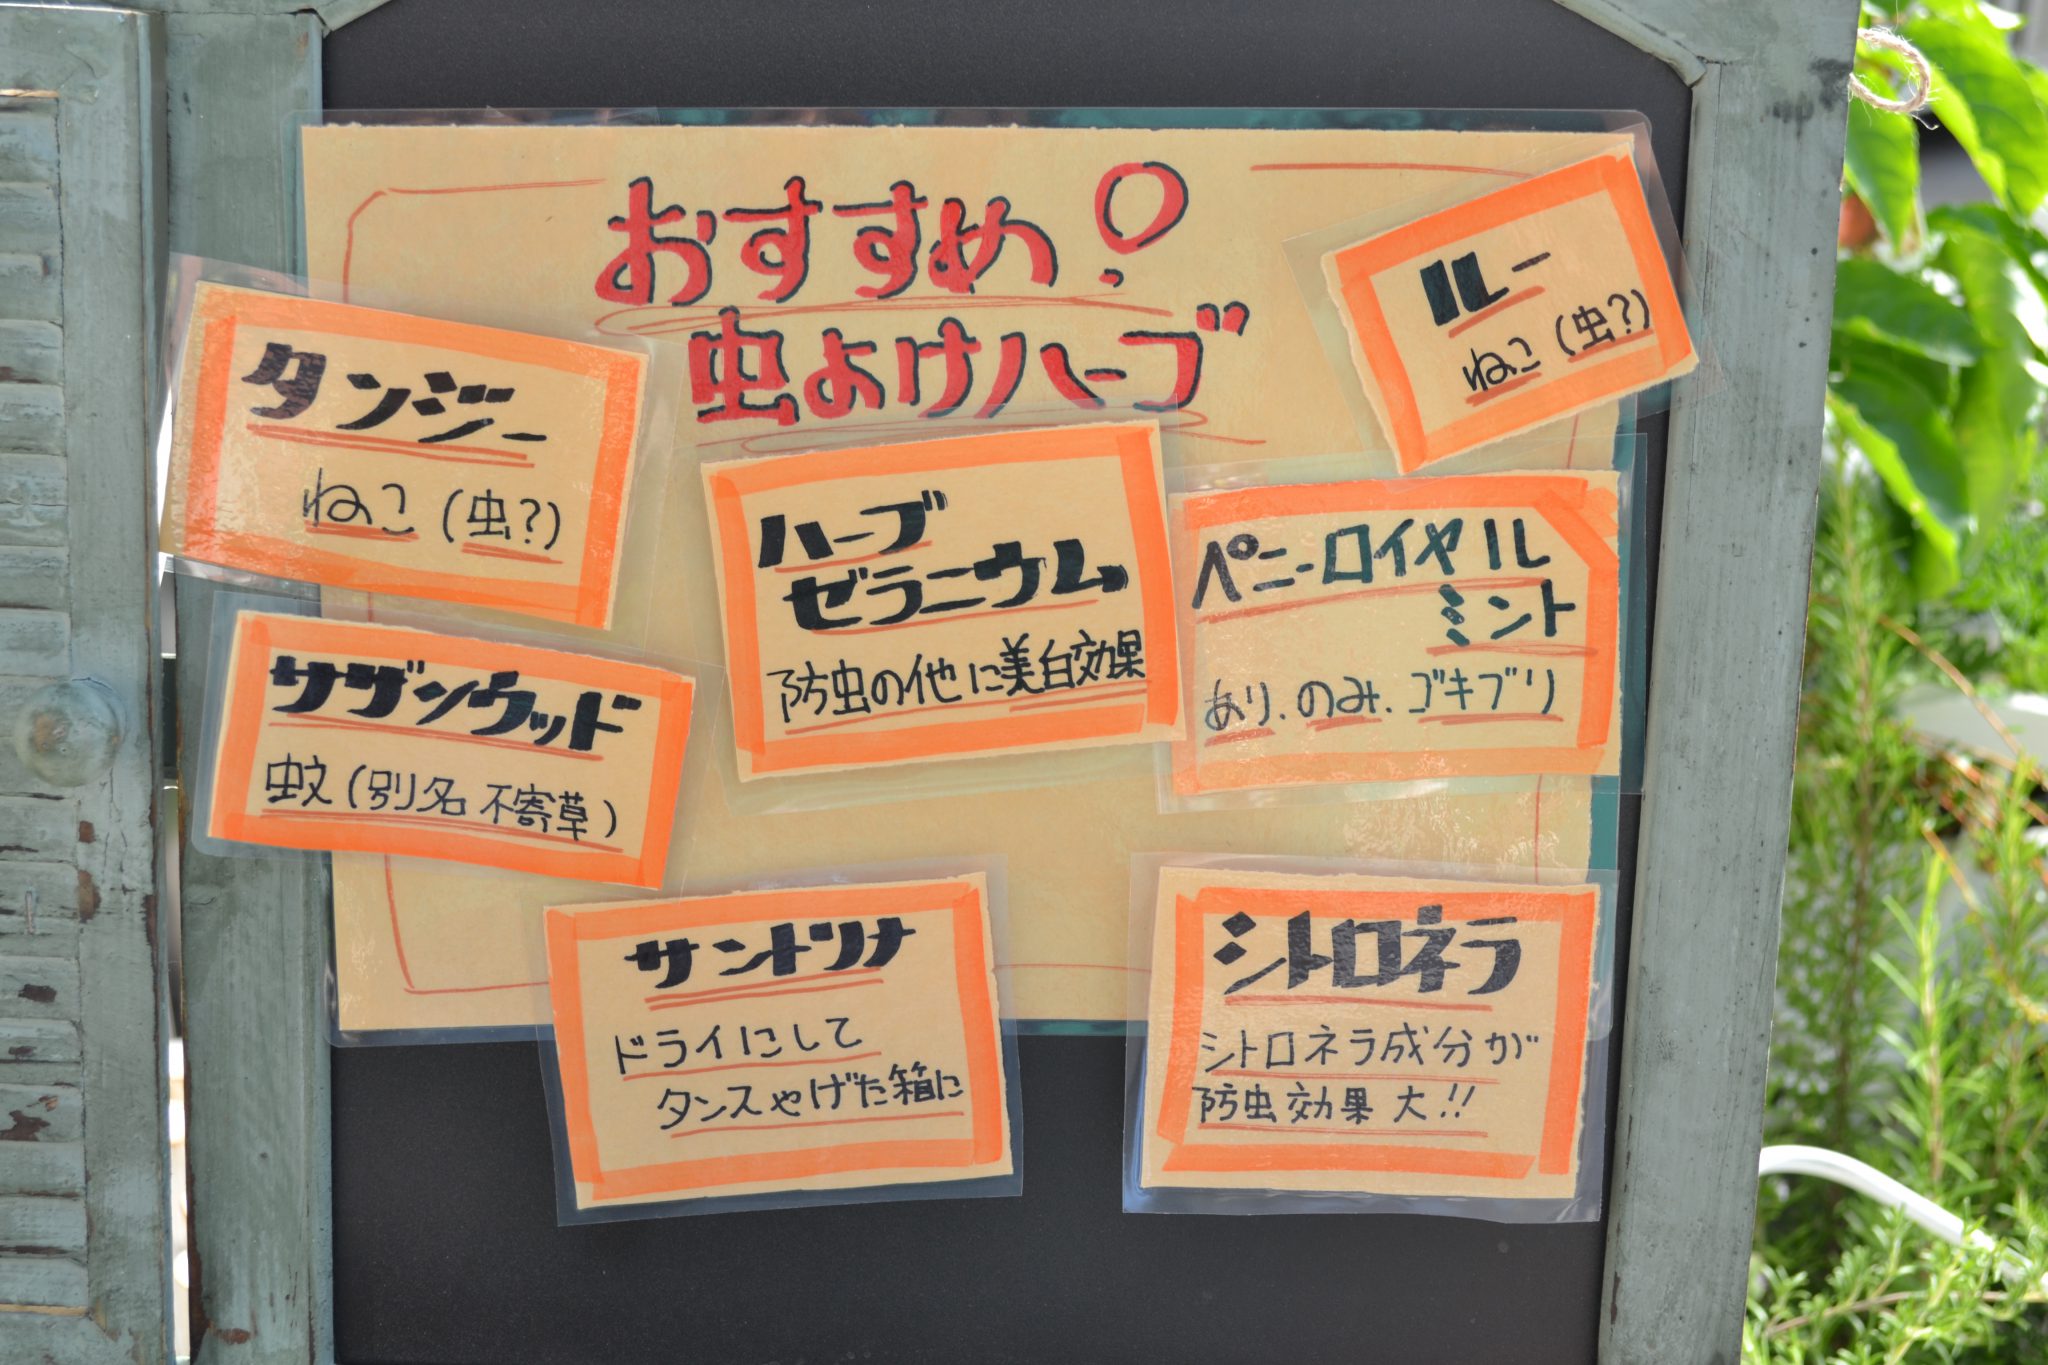 おすすめ!
虫よけハーブ
ルー
ねこ(虫?)
タンジー
ねこ(虫?)
ハーブ
ゼラニウム
防虫の他に美白効果
ペニーロイヤル
ミント
あり.のみ.ゴキブリ
サザンウッド
蚊(別名 不寄草)
サントリナ
ドライにして
タンスやげた箱に
シトロネラ
シトロネラ成分が
防虫効果大!!